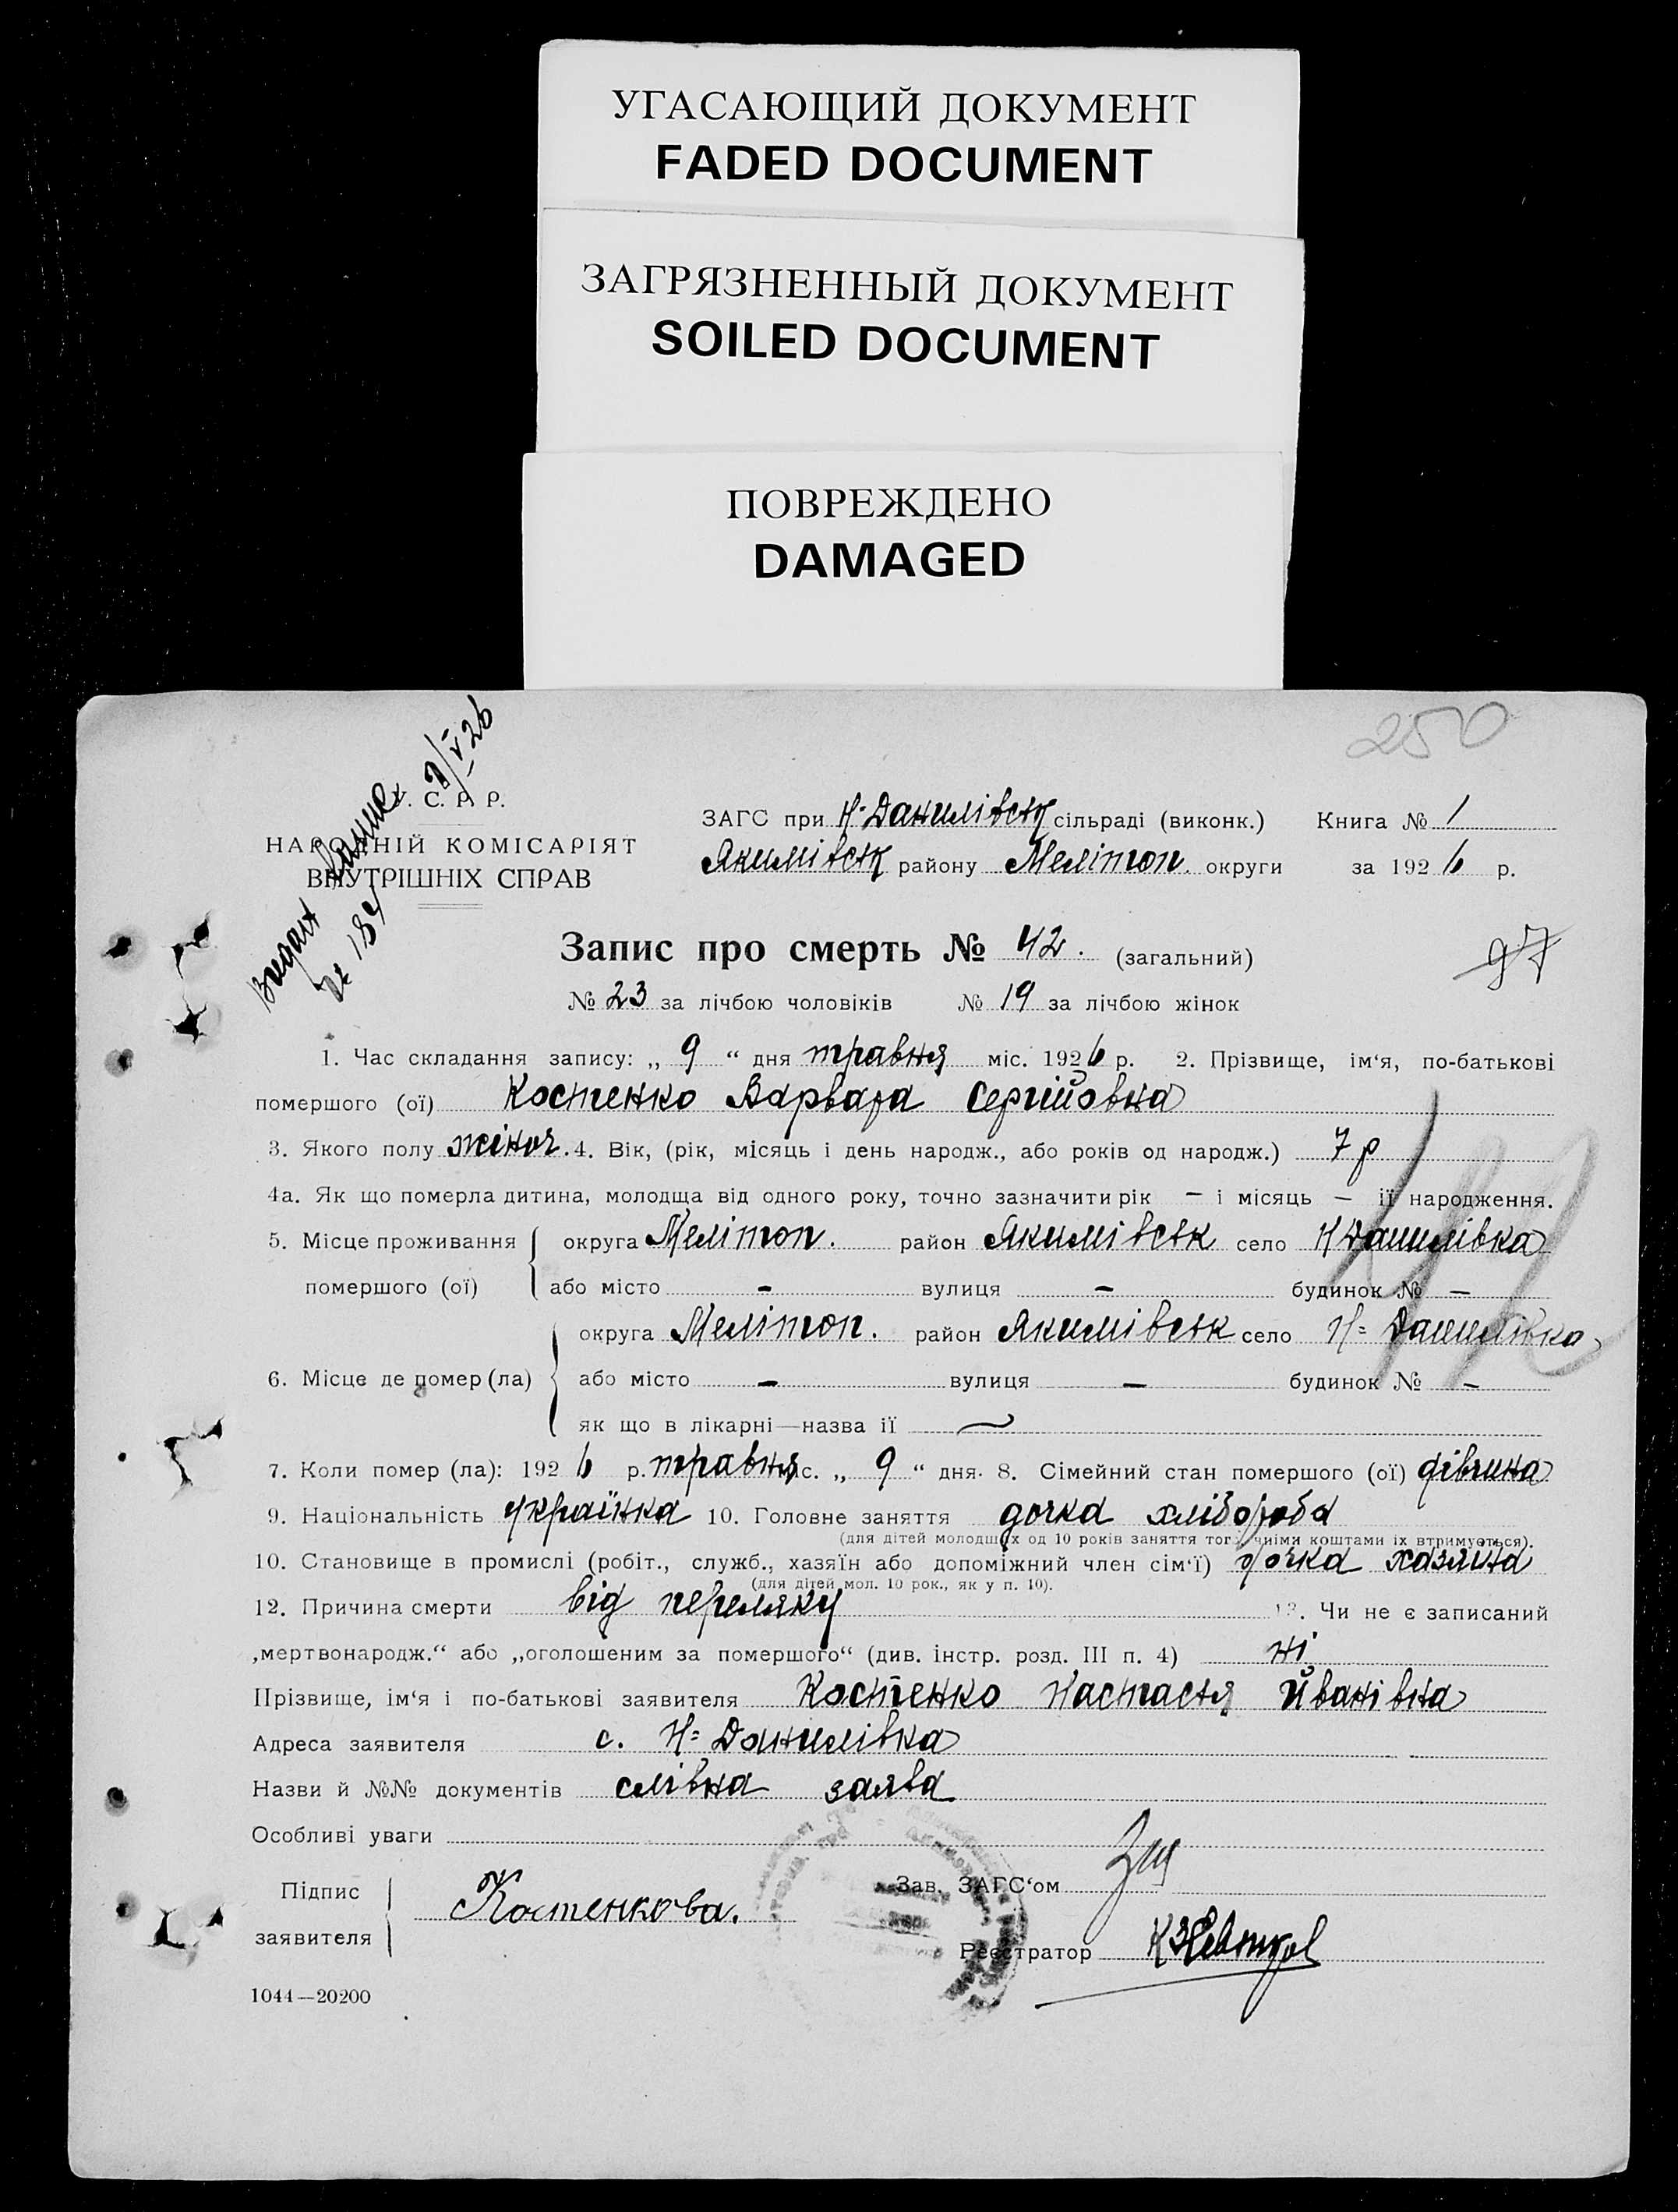 УГАСАЮЩИЙ ДОКУМЕНТ
FADED DOCUMENT
ЗАГРЯЗНЕННЫЙ ДОКУМЕНТ
SOILED DOCUMENT
ПОВРЕЖДЕНО
DAMAGED
250
У. С. Р. Р.
НАРОДНІЙ КОМІСАРІЯТ
ВНУТРІШНІХ СПРАВ
9/V 26
№ 184
ЗАГС при Н-Данилівськ сільраді (виконк.) Книга № 1
Якимівськ району Мелітоп. округи за 1926 р.
Запис про смерть № 42. (загальний)
97
№ 23 за лічбою чоловіків № 19 за лічбою жінок
1. Час складання запису: „ 9 “ дня травня міс. 1926 р. 2. Прізвище, ім‘я, по-батькові
помершого (ої) Костенко Варвара Сергійовна
3. Якого полу жіноч. 4. Вік, (рік, місяць і день народж., або років од народж.) 7 р
4а. Як що померла дитина, молодща від одного року, точно зазначити рік — і місяць — її народження.
5. Місце проживання округа Мелітоп. район Якимівськ село Н Данилівка
помершого (ої) або місто — вулиця — будинок № —
округа Мелітоп. район Якимівськ село Н= Данилівка
6. Місце де помер (ла) або місто — вулиця — будинок № —
як що в лікарні—назва її
7. Коли помер (ла): 1926 р. травня міс. „ 9 “ дня. 8. Сімейний стан помершого (ої) дівчина
9. Національність українка 10. Головне заняття дочка хлібороба
(для дітей молодщих од 10 років заняття того, чиіми коштами їх втримується).
10. Становище в промислі (робіт., служб., хазяїн або допоміжний член сім‘ї) дочка хазяина
(для дітей мол. 10 рок., як у п. 10).
12. Причина смерти від переляку 13. Чи не є записаний
„мертвонародж.“ або „оголошеним за помершого“ (див. інстр. розд. III п. 4) ні
Прізвище, ім‘я і по-батькові заявителя Костенко Настася Йванівна
Адреса заявителя с. Н= Данилівка
Назви й №№ документів слівна заява
Особливі уваги
Підпис
заявителя Костенкова.
Зав. ЗАГС‘ом
Реєстратор
1044—20200